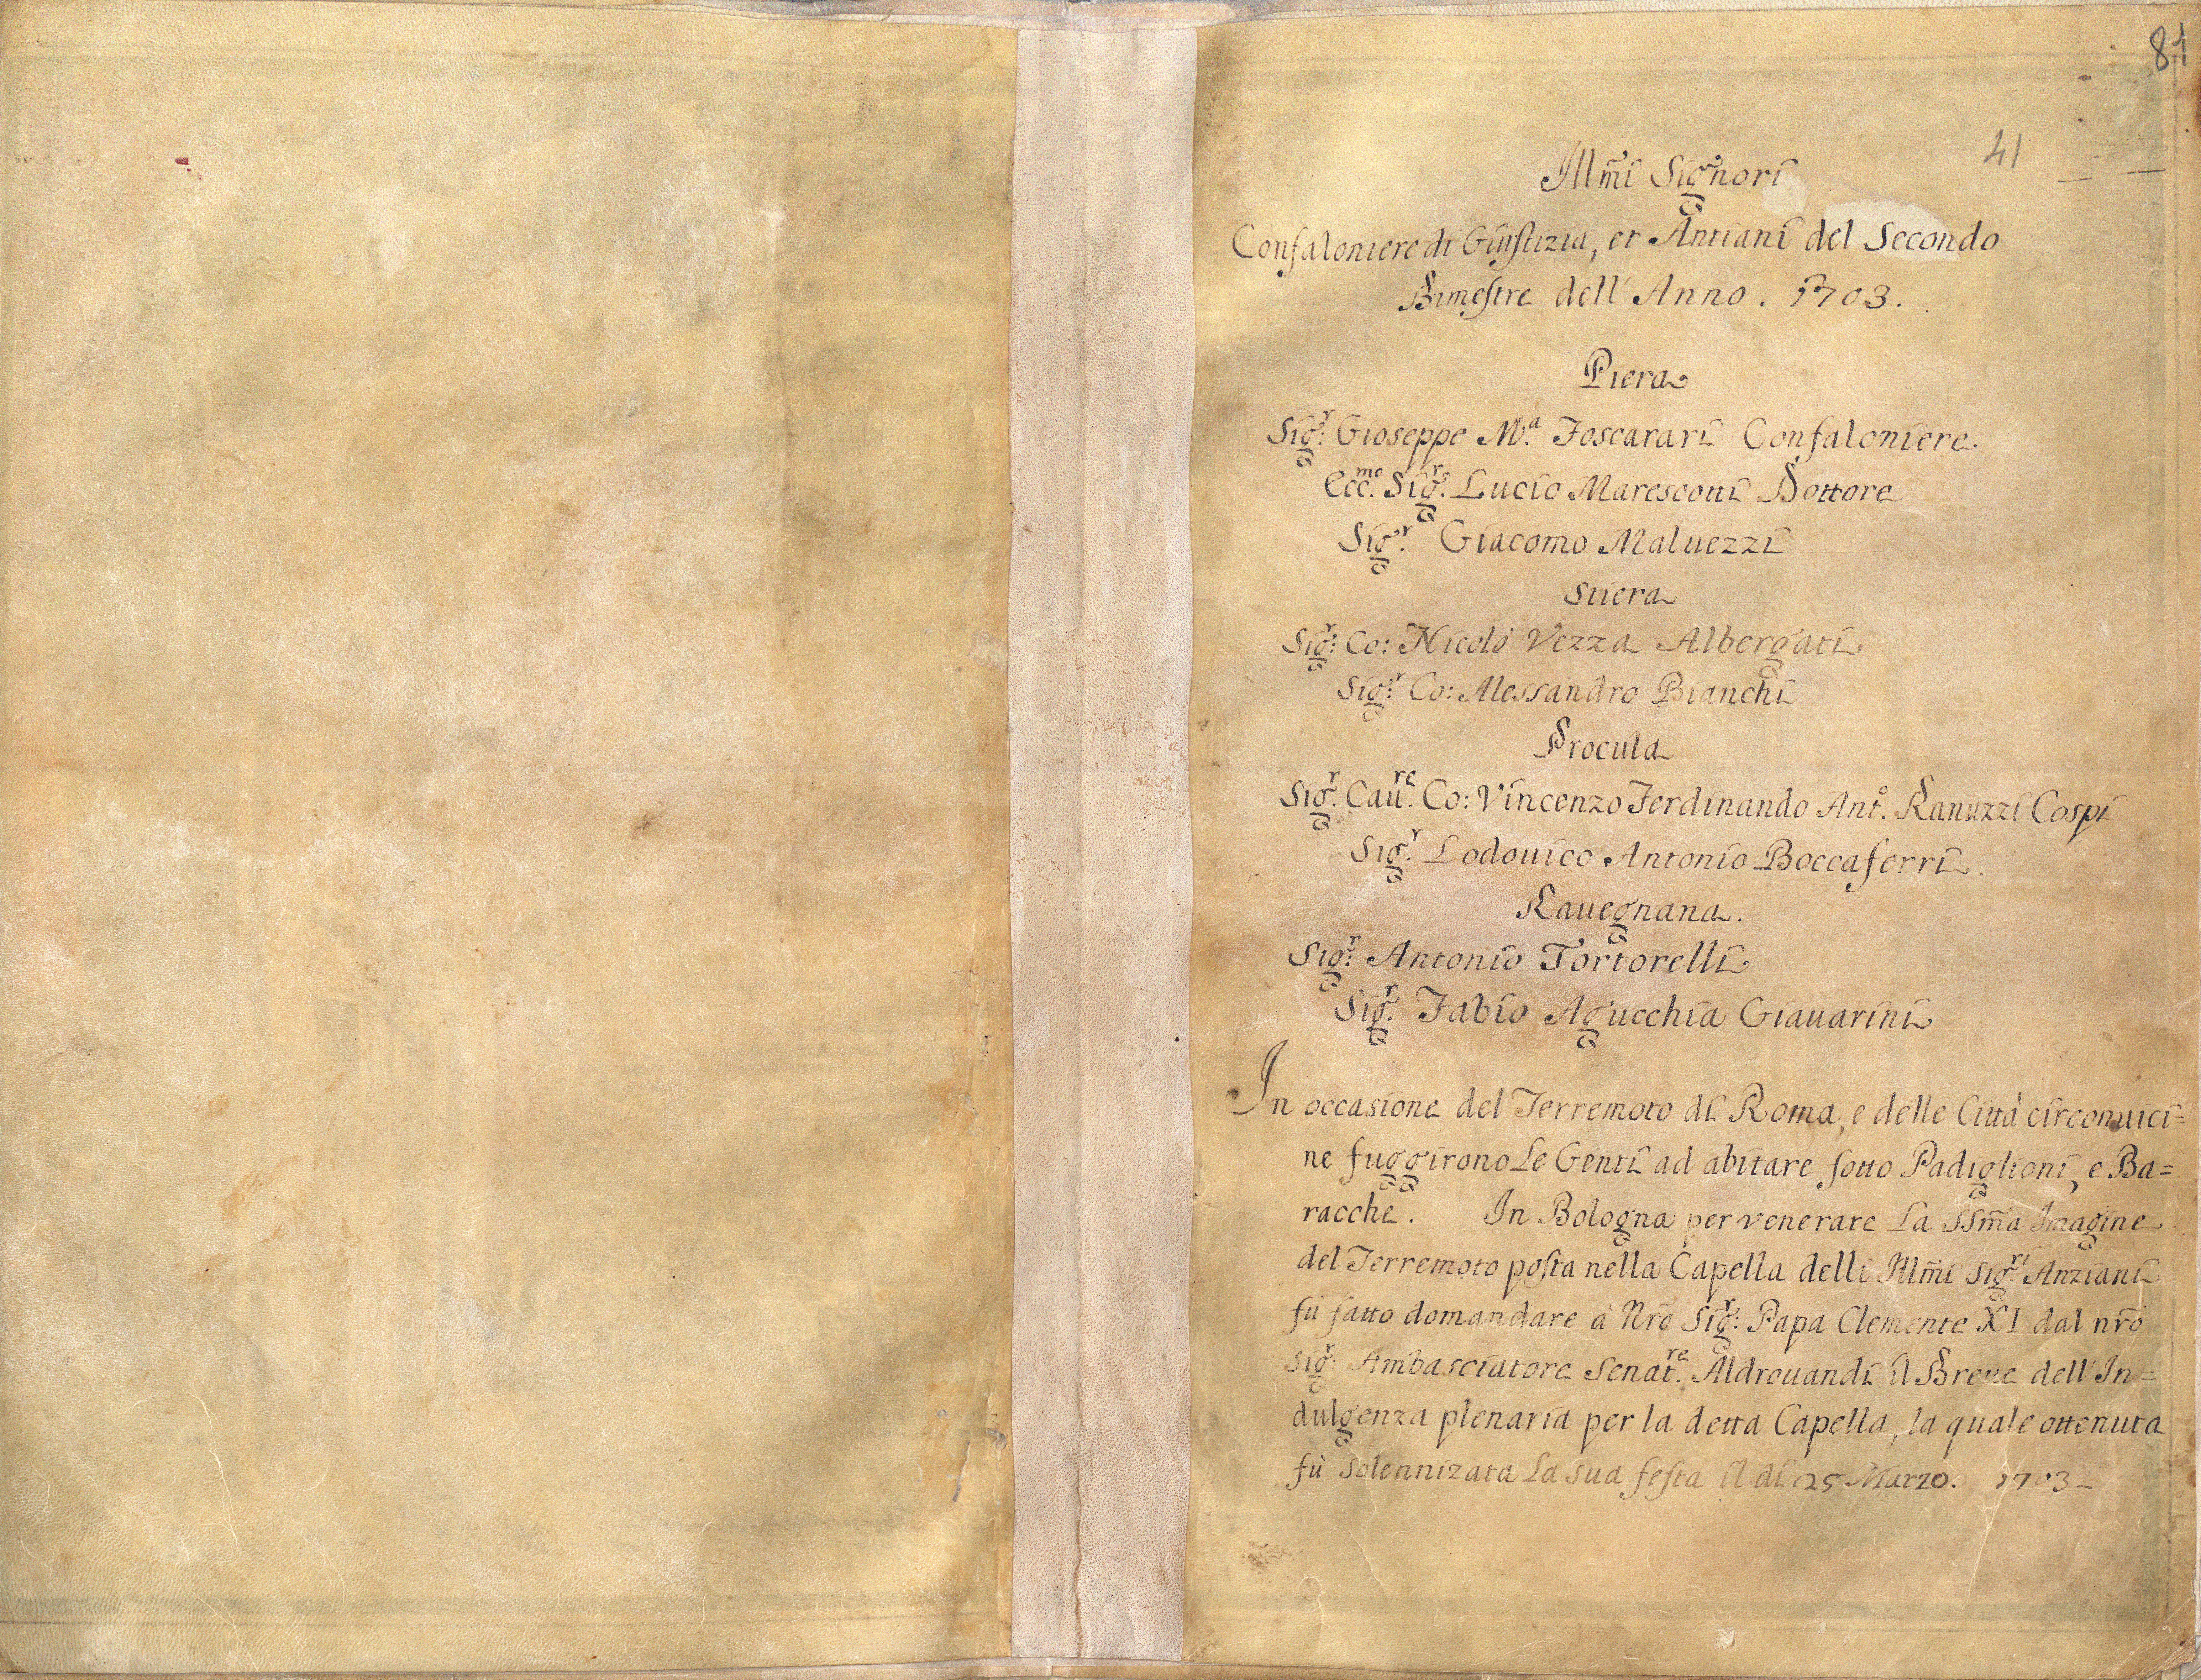 81
41
Illm̃i Signori
Confaloniere di Giustizia, et Antiani del Secondo
Bimestre dell' Anno . 1703 .
Piera
Sig.r Gioseppe M.a Foscarari Confaloniere.
Ecc.mo Sig.r Lucio Marescotti Dottore
Sig.r Giacomo Maluezzi
Stiera
Sig.r Co: Nicolò Vezza Albergati
Sig.r Co: Alessandro Bianchi
Procula
Sig.r Cau.re Co: Vincenzo Ferdinando Ant.o Ranuzzi Cospi
Sig.r Lodouico Antonio Boccaferri
Rauegnana .
Sig.r Antonio Tortorelli
Sig.r Fabio Agucchia Giauarini
In occasione del Terremoto di Roma, e delle Città circonuici=
ne fuggirono Le Genti ad abitare sotto Padiglioni, e Ba=
racche . In Bologna per venerare La SSm̃a Imagine
del Terremoto posta nella Capella delli Illm̃i Sig.ri Anziani
fù fatto domandare à Nrõ Sig.r Papa Clemente XI dal nrõ
Sig.r Ambasciatore Senat.re Aldrouandi il Breue dell' In=
dulgenza plenaria per la detta Capella, la quale ottenuta
fù solennizata La sua festa il dì 25 Marzo . 1703